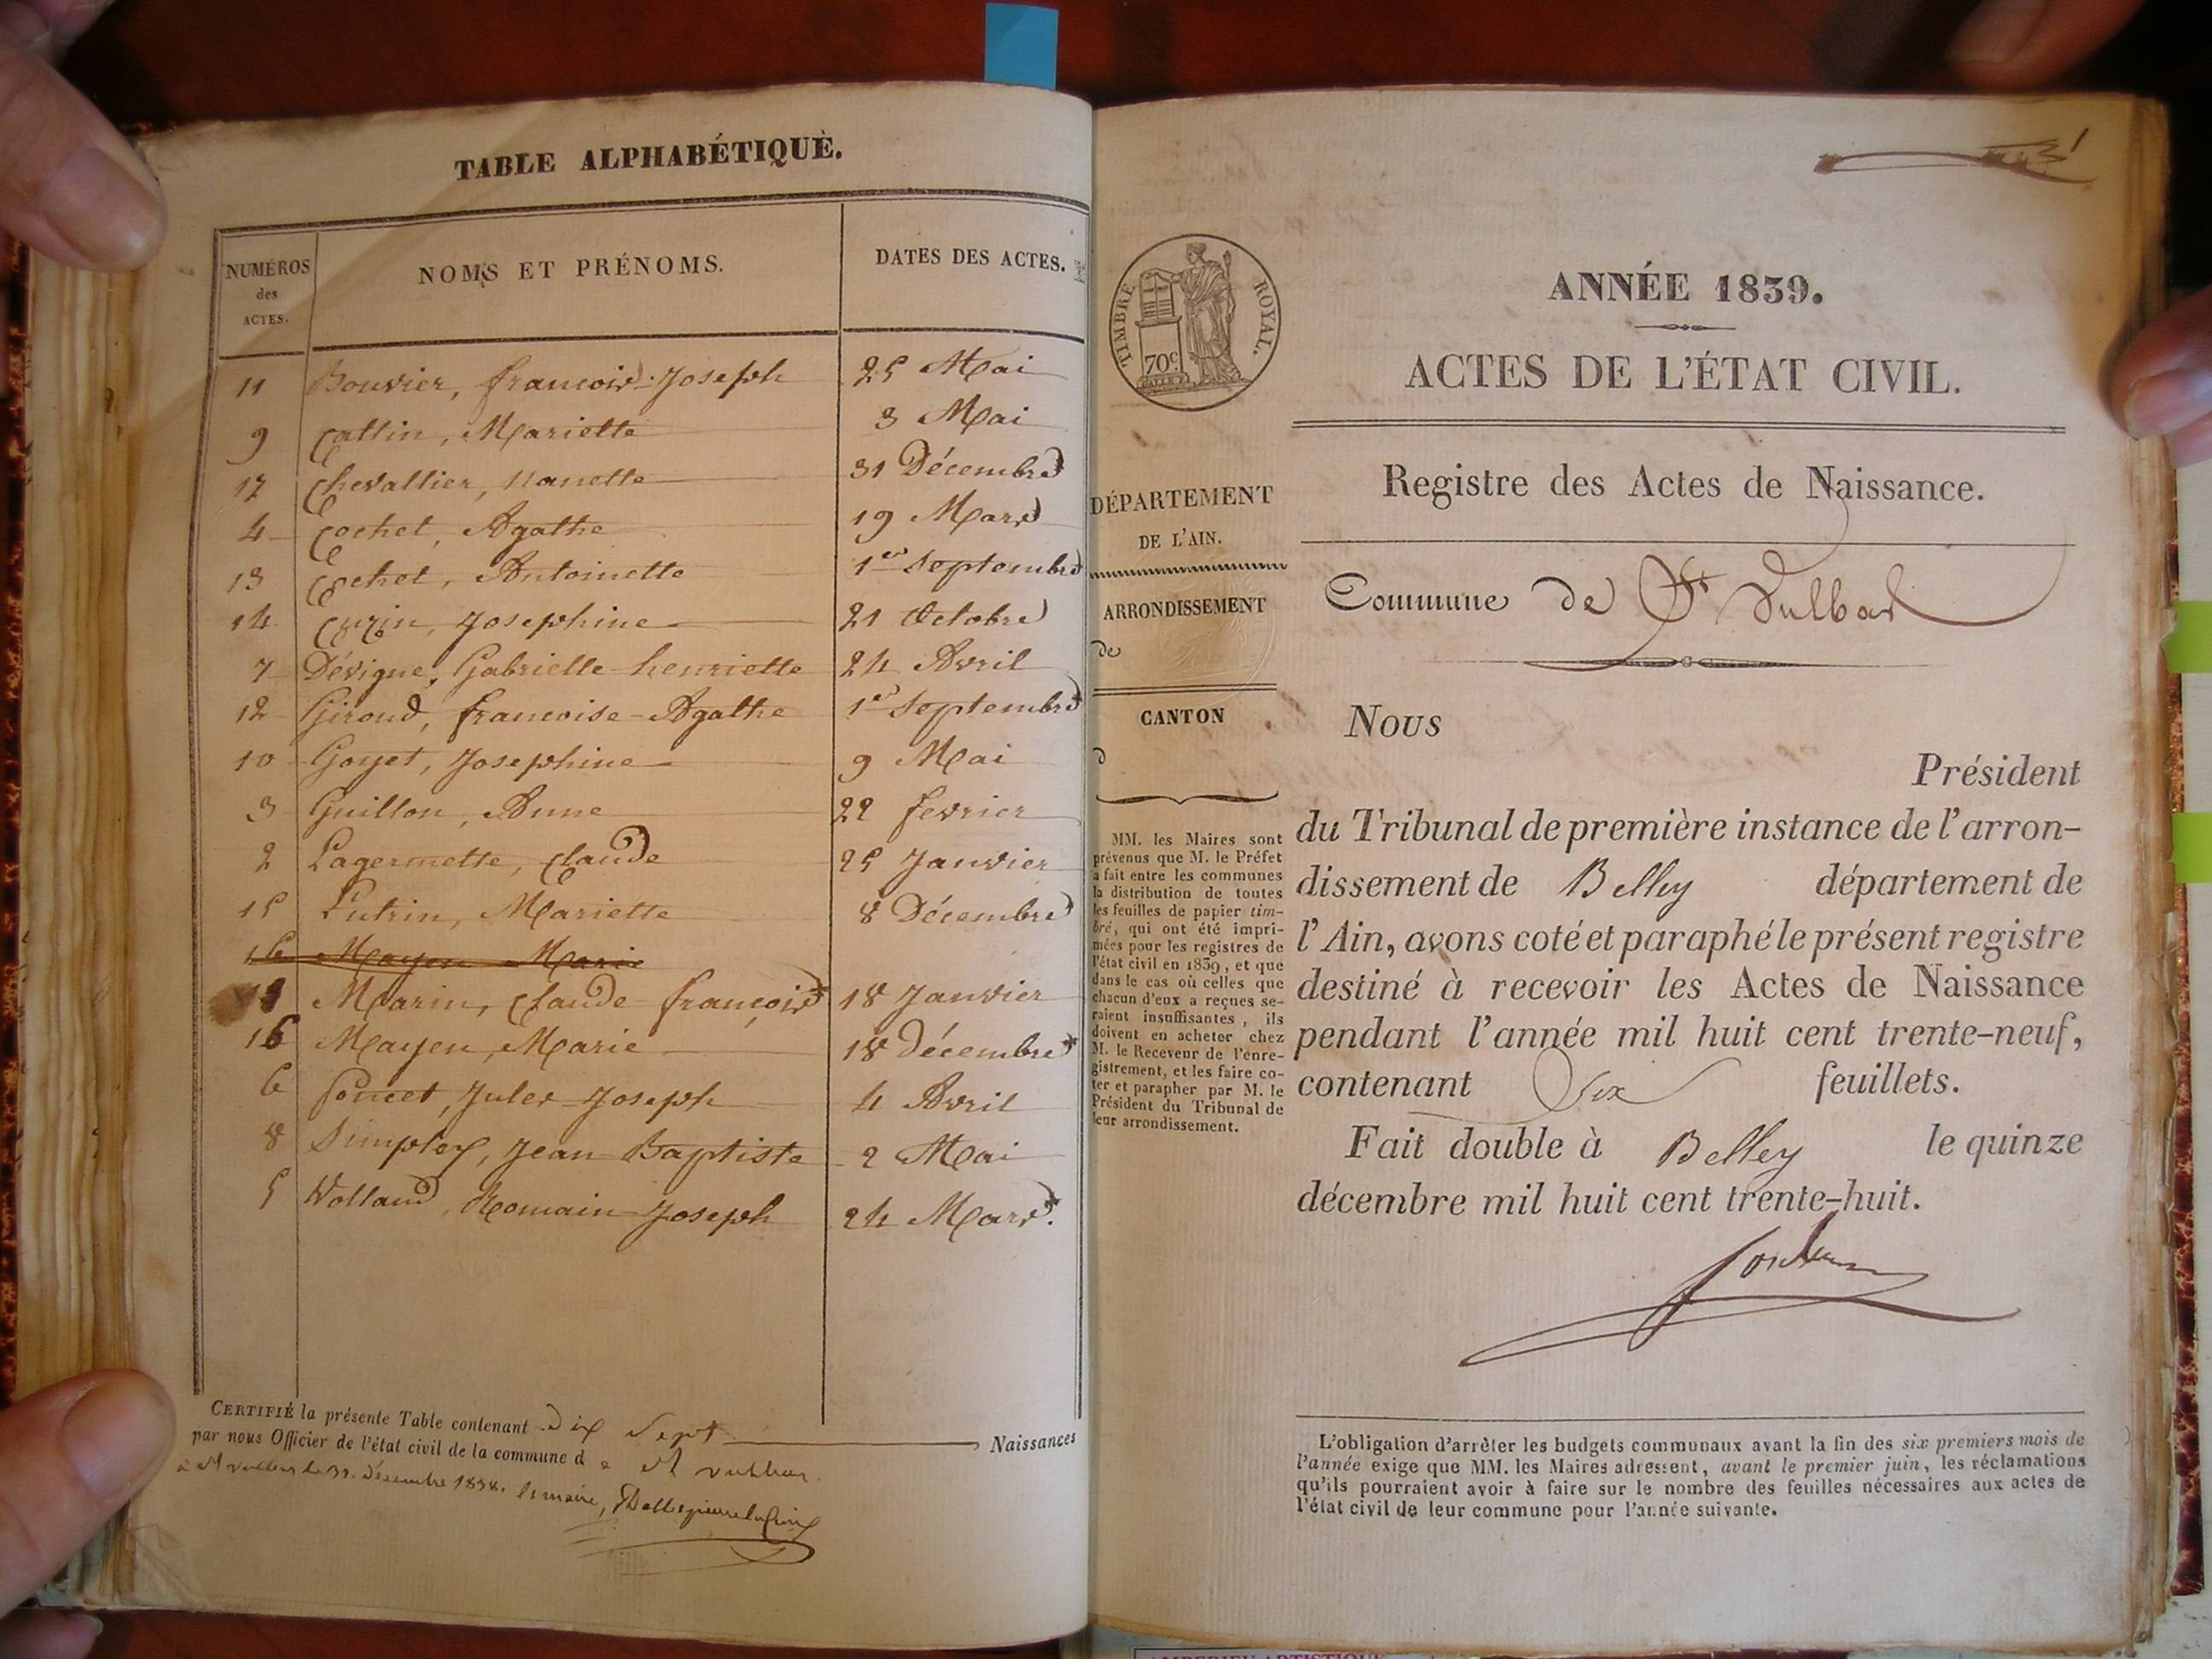 TABLE ALPHABÉTIQUE.
NUMÉROS
des
ACTES.
NOMS ET PRÉNOMS.
DATES DES ACTES.
11 Bouvier, françois-Joseph 25 Mai
9 Cattin, Mariette 3 Mai
17 Chevallier, Nanette 31 Décembre
4 Cochet, Agathe 19 Mars
13 Cochet, Antoinette 1er Septembre
14 Cuzin, Josephine 21 Octobre
7 Dévigne, Gabrielle-henriette 24 Avril
12 Giroud, francoise-Agathe 1er Septembre
10 Goyet, Josephine 9 Mai
3 Guillon, Anne 22 fevrier
2 Lagermette, Claude 25 Janvier
15 Lutrin, Mariette 8 Décembre
16 Mayen Marie
1 Marin, Claude-françois 18 Janvier
16 Mayen, Marie 18 décembre
6 Poncet, Jules-Joseph 4 Avril
8 Simpley, Jean-Baptiste 2 Mai
5 Wolland, Romain-Joseph 24 Mars.
CERTIFIÉ la présente Table contenant dix Sept Naissances
par nous Officier de l'état civil de la commune de St vulbas.
à St vulbas le 31. décembre 1838. le maire,
1
TIMBRE ROYAL.
70c
DÉPARTEMENT
DE L'AIN.
ARRONDISSEMENT
de
CANTON
d
MM. les Maires sont
prévenus que M. le Préfet
a fait entre les communes
la distribution de toutes
les feuilles de papier tim-
bré, qui ont été impri-
mées pour les registres de
l'état civil en 1839, et que
dans le cas où celles que
chacun d'eux a reçues se-
raient insuffisantes, ils
doivent en acheter chez
M. le Receveur de l'enre-
gistrement, et les faire co-
ter et parapher par M. le
Président du Tribunal de
leur arrondissement.
ANNÉE 1839.
ACTES DE L'ÉTAT CIVIL.
Registre des Actes de Naissance.
Commune de St Vulbas
Nous
Président
du Tribunal de première instance de l'arron-
dissement de Belley département de
l'Ain, avons coté et paraphé le présent registre
destiné à recevoir les Actes de Naissance
pendant l'année mil huit cent trente-neuf,
contenant Six feuillets.
Fait double à Belley le quinze
décembre mil huit cent trente-huit.
L'obligation d'arrêter les budgets communaux avant la fin des six premiers mois de
l'année exige que MM. les Maires adressent, avant le premier juin, les réclamations
qu'ils pourraient avoir à faire sur le nombre des feuilles nécessaires aux actes de
l'état civil de leur commune pour l'année suivante.